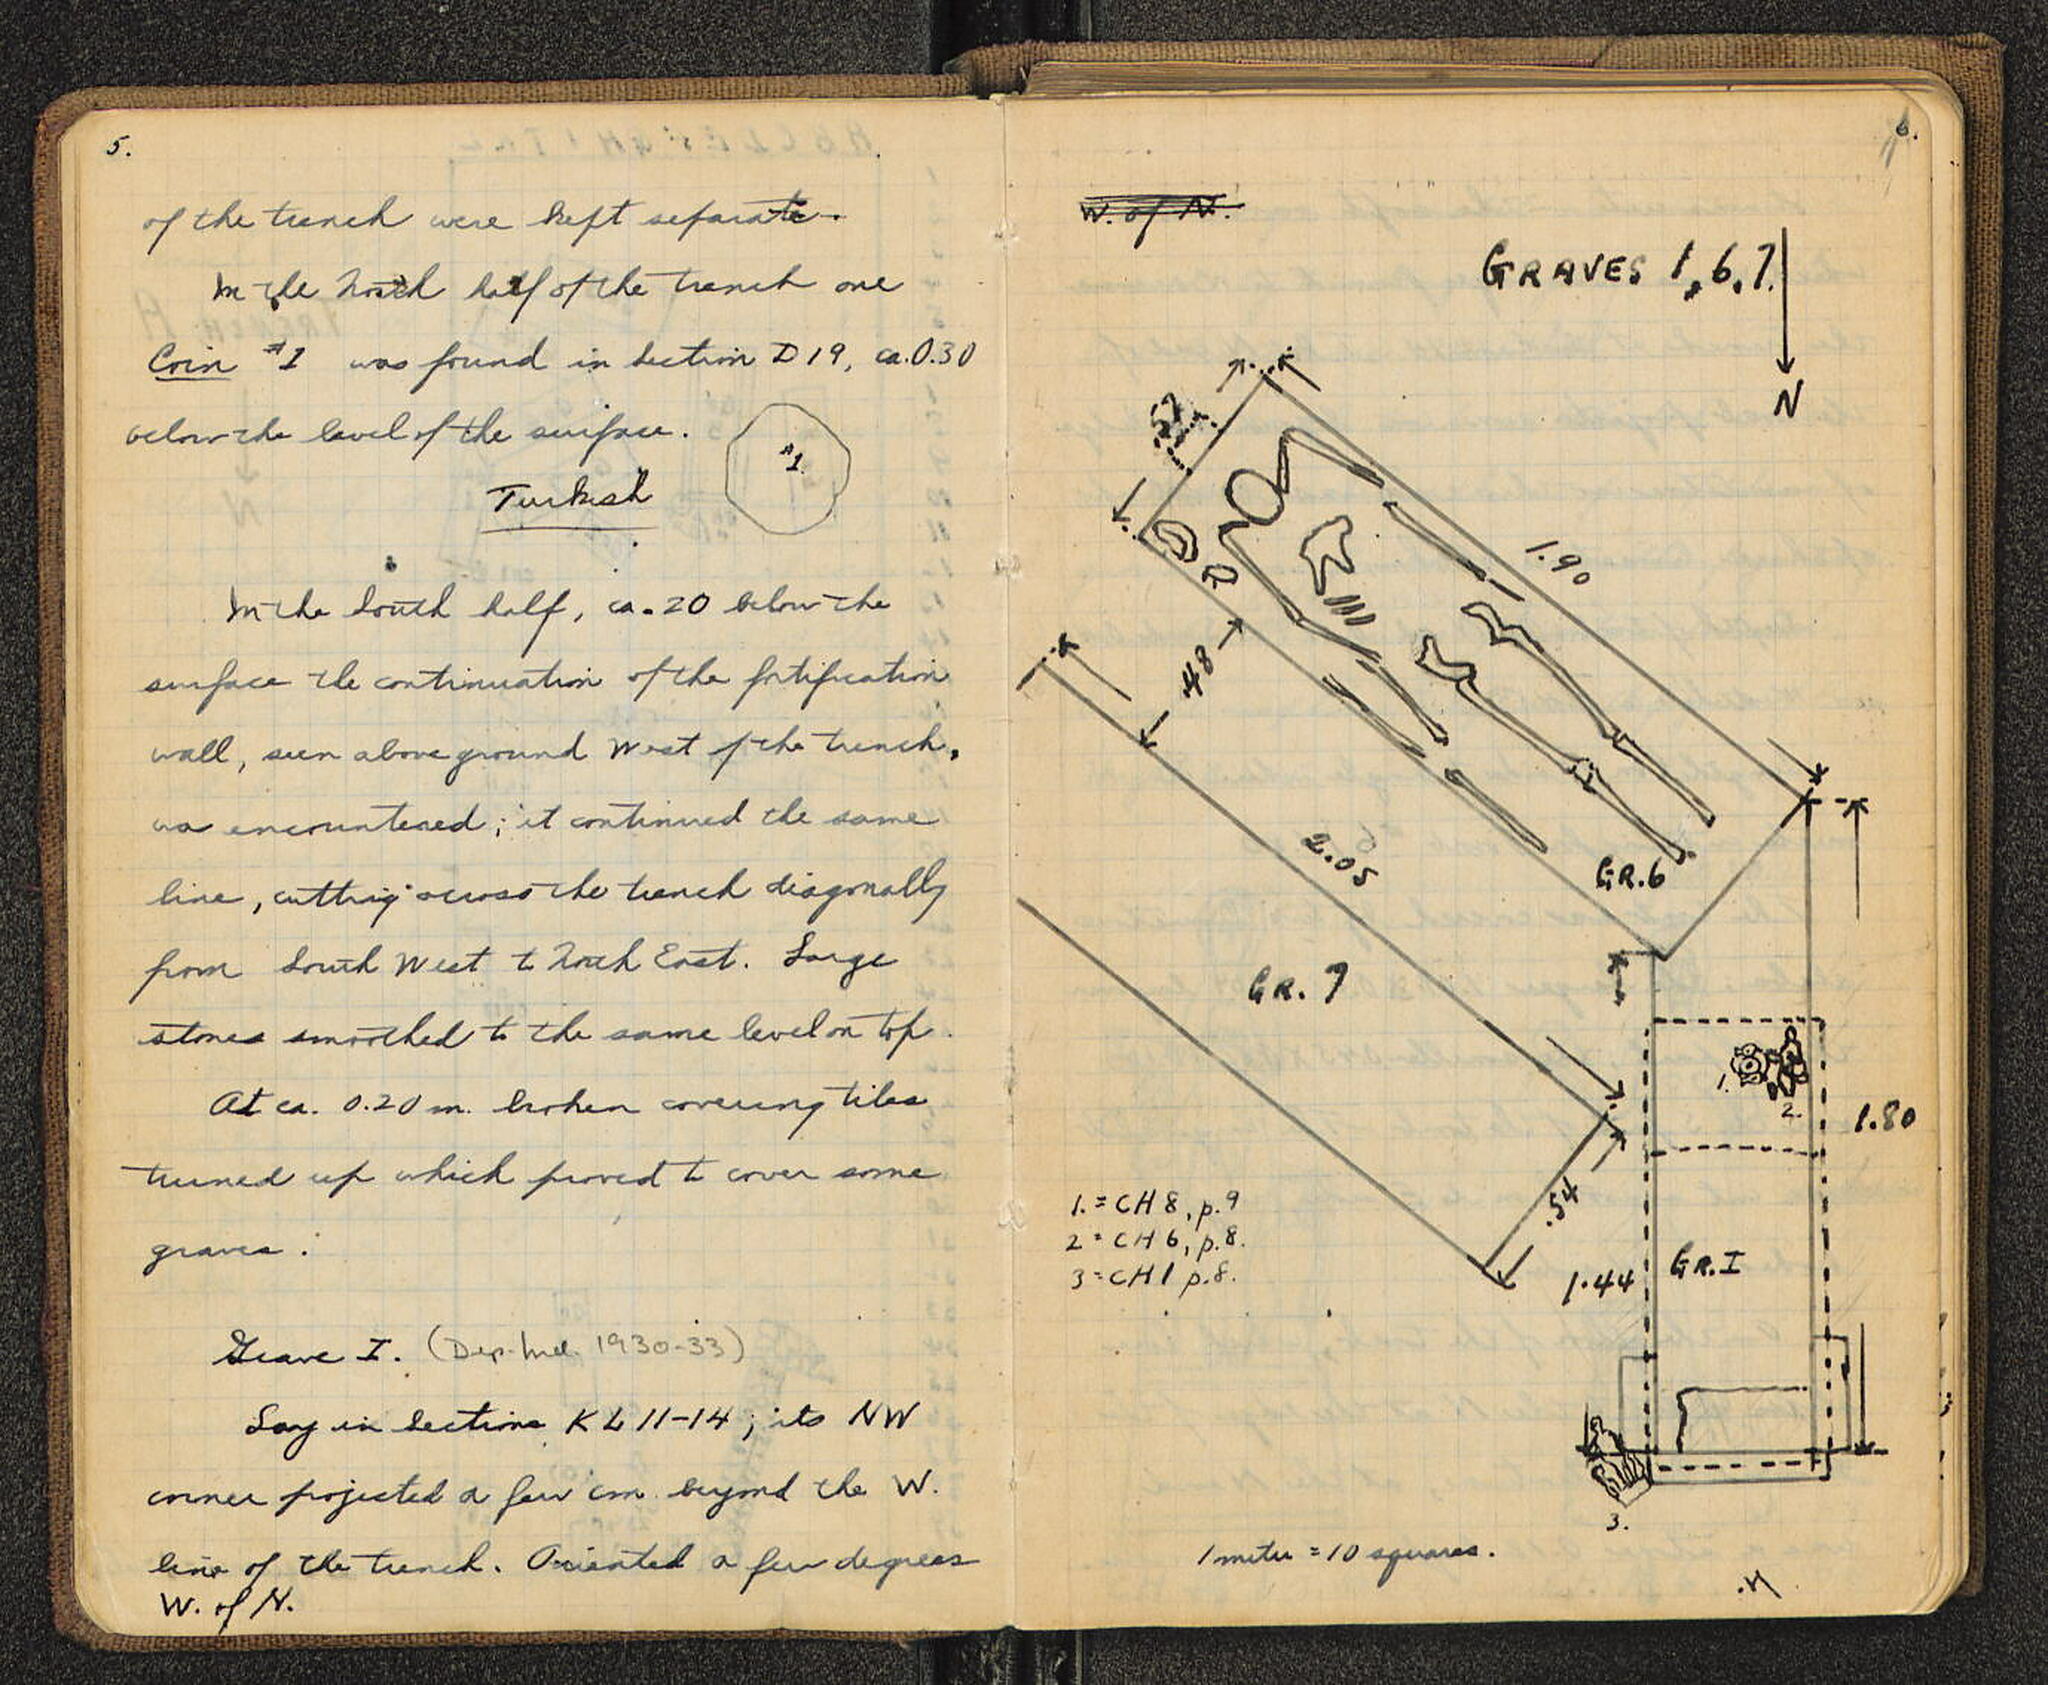 5.
of the trench were kept separate.
In the North half of the trench one
Coin #1 was found in Section D 19, ca. 0.30
below the level of the surface.
#1
Turkish
In the South half, ca. 20 below the
surface the continuation of the fortification
wall, seen above ground West of the trench,
was encountered; it continued the same
line, cutting across the trench diagonally
from South West to North East. Large
stones smoothed to the same level on top.
At ca. 0.20 m. broken covering tiles
turned up which proved to cover some
graves.
Grave I. (Dep. Ined. 1930-33)
Lay in Sections K L 11-14; its NW
corner projected a few cm. beyond the W.
line of the trench. Oriented a few degrees
W. of N.
6.
W. of N.
GRAVES 1, 6, 7.
N
.52
1.90
.48
2.05
GR. 6
GR. 7
.54
1.
2.
1.80
1. = CH 8, p. 9
2 = CH 6, p. 8.
3 = CH 1 p. 8.
1.44
GR. I
3.
1 meter = 10 squares.
N.